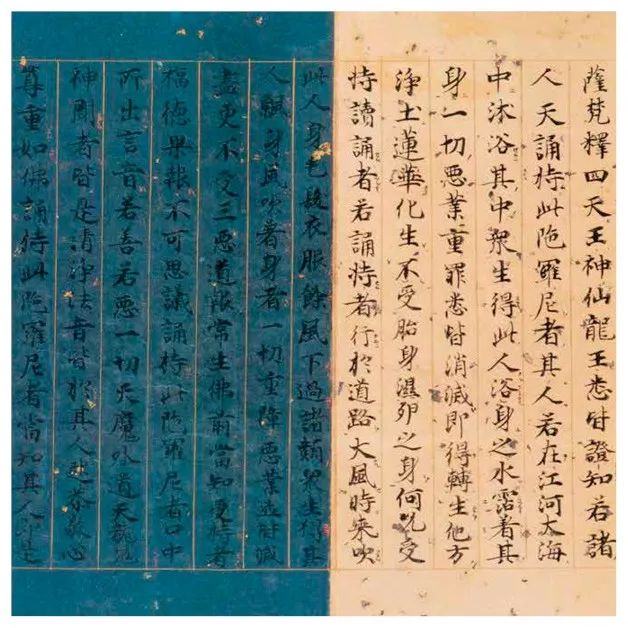 薩梵釋四天王神仙龍王悉皆證知若諸
人天誦持此陁羅尼者其人若在江河大海
中沐浴其中衆生得此人浴身之水霑著其
身一切惡業重罪悉皆消滅即得轉生他方
淨土蓮華化生不受胎身濕卵之身何况受
持讀誦者若誦持者行於道路大風時来吹
此人身毛髮衣服餘風下過諸類衆生得其
人飄身風吹著身者一切重障惡業並皆滅
盡更不受三惡道報常生佛前當知受持者
福德果報不可思議誦持此陁羅尼者口中
所出言音若善若惡一切天魔外道天龍鬼
神聞者皆是清淨法音皆於其人起恭敬心
尊重如佛誦持此陁羅尼者當知其人即是